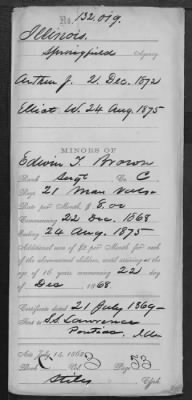 No. 132,019.
Illinois.
Springfield Agency
Arthur J. 21 Dec. 1872
Elliot W. 24 Aug. 1875
MINORS OF
Edwin T. Brown
Rank Sergt Co. C
Regt 21 Mass Vols
Rate per Month, $ 8.00
Commencing 22 Dec. 1868
Ending 24 Aug. 1875
Additional sum of $2 per Month for each
of the abovenamed children, until arriving at the
age of 16 years commencing 22
of Dec 1868
Certificate dated 21 July 1869
Sent to S.S. Lawrence
Pontiac, Ills
Act July 14, 1862
Book C Vol. 3 Page 53
Stiles Clerk